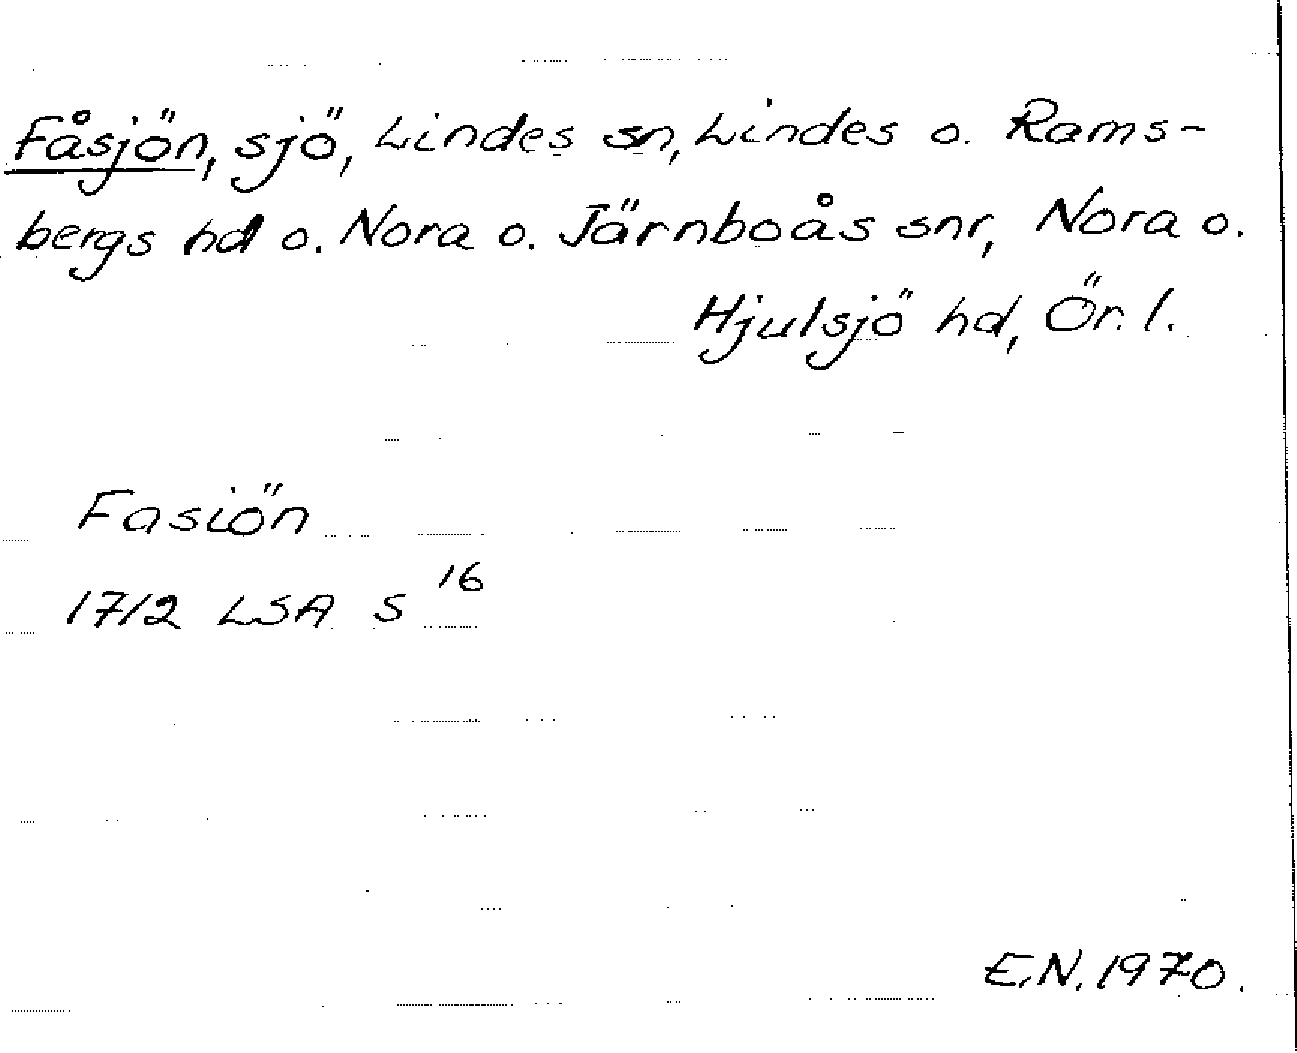 Fåsjön, sjö, Lindes sn, Lindes o. Rams-
bergs hd o. Nora o. Järnboås snr, Nora o.
Hjulsjö hd, Ör. l.
Fasiön
1712 LSA S 16
E.N. 1970.